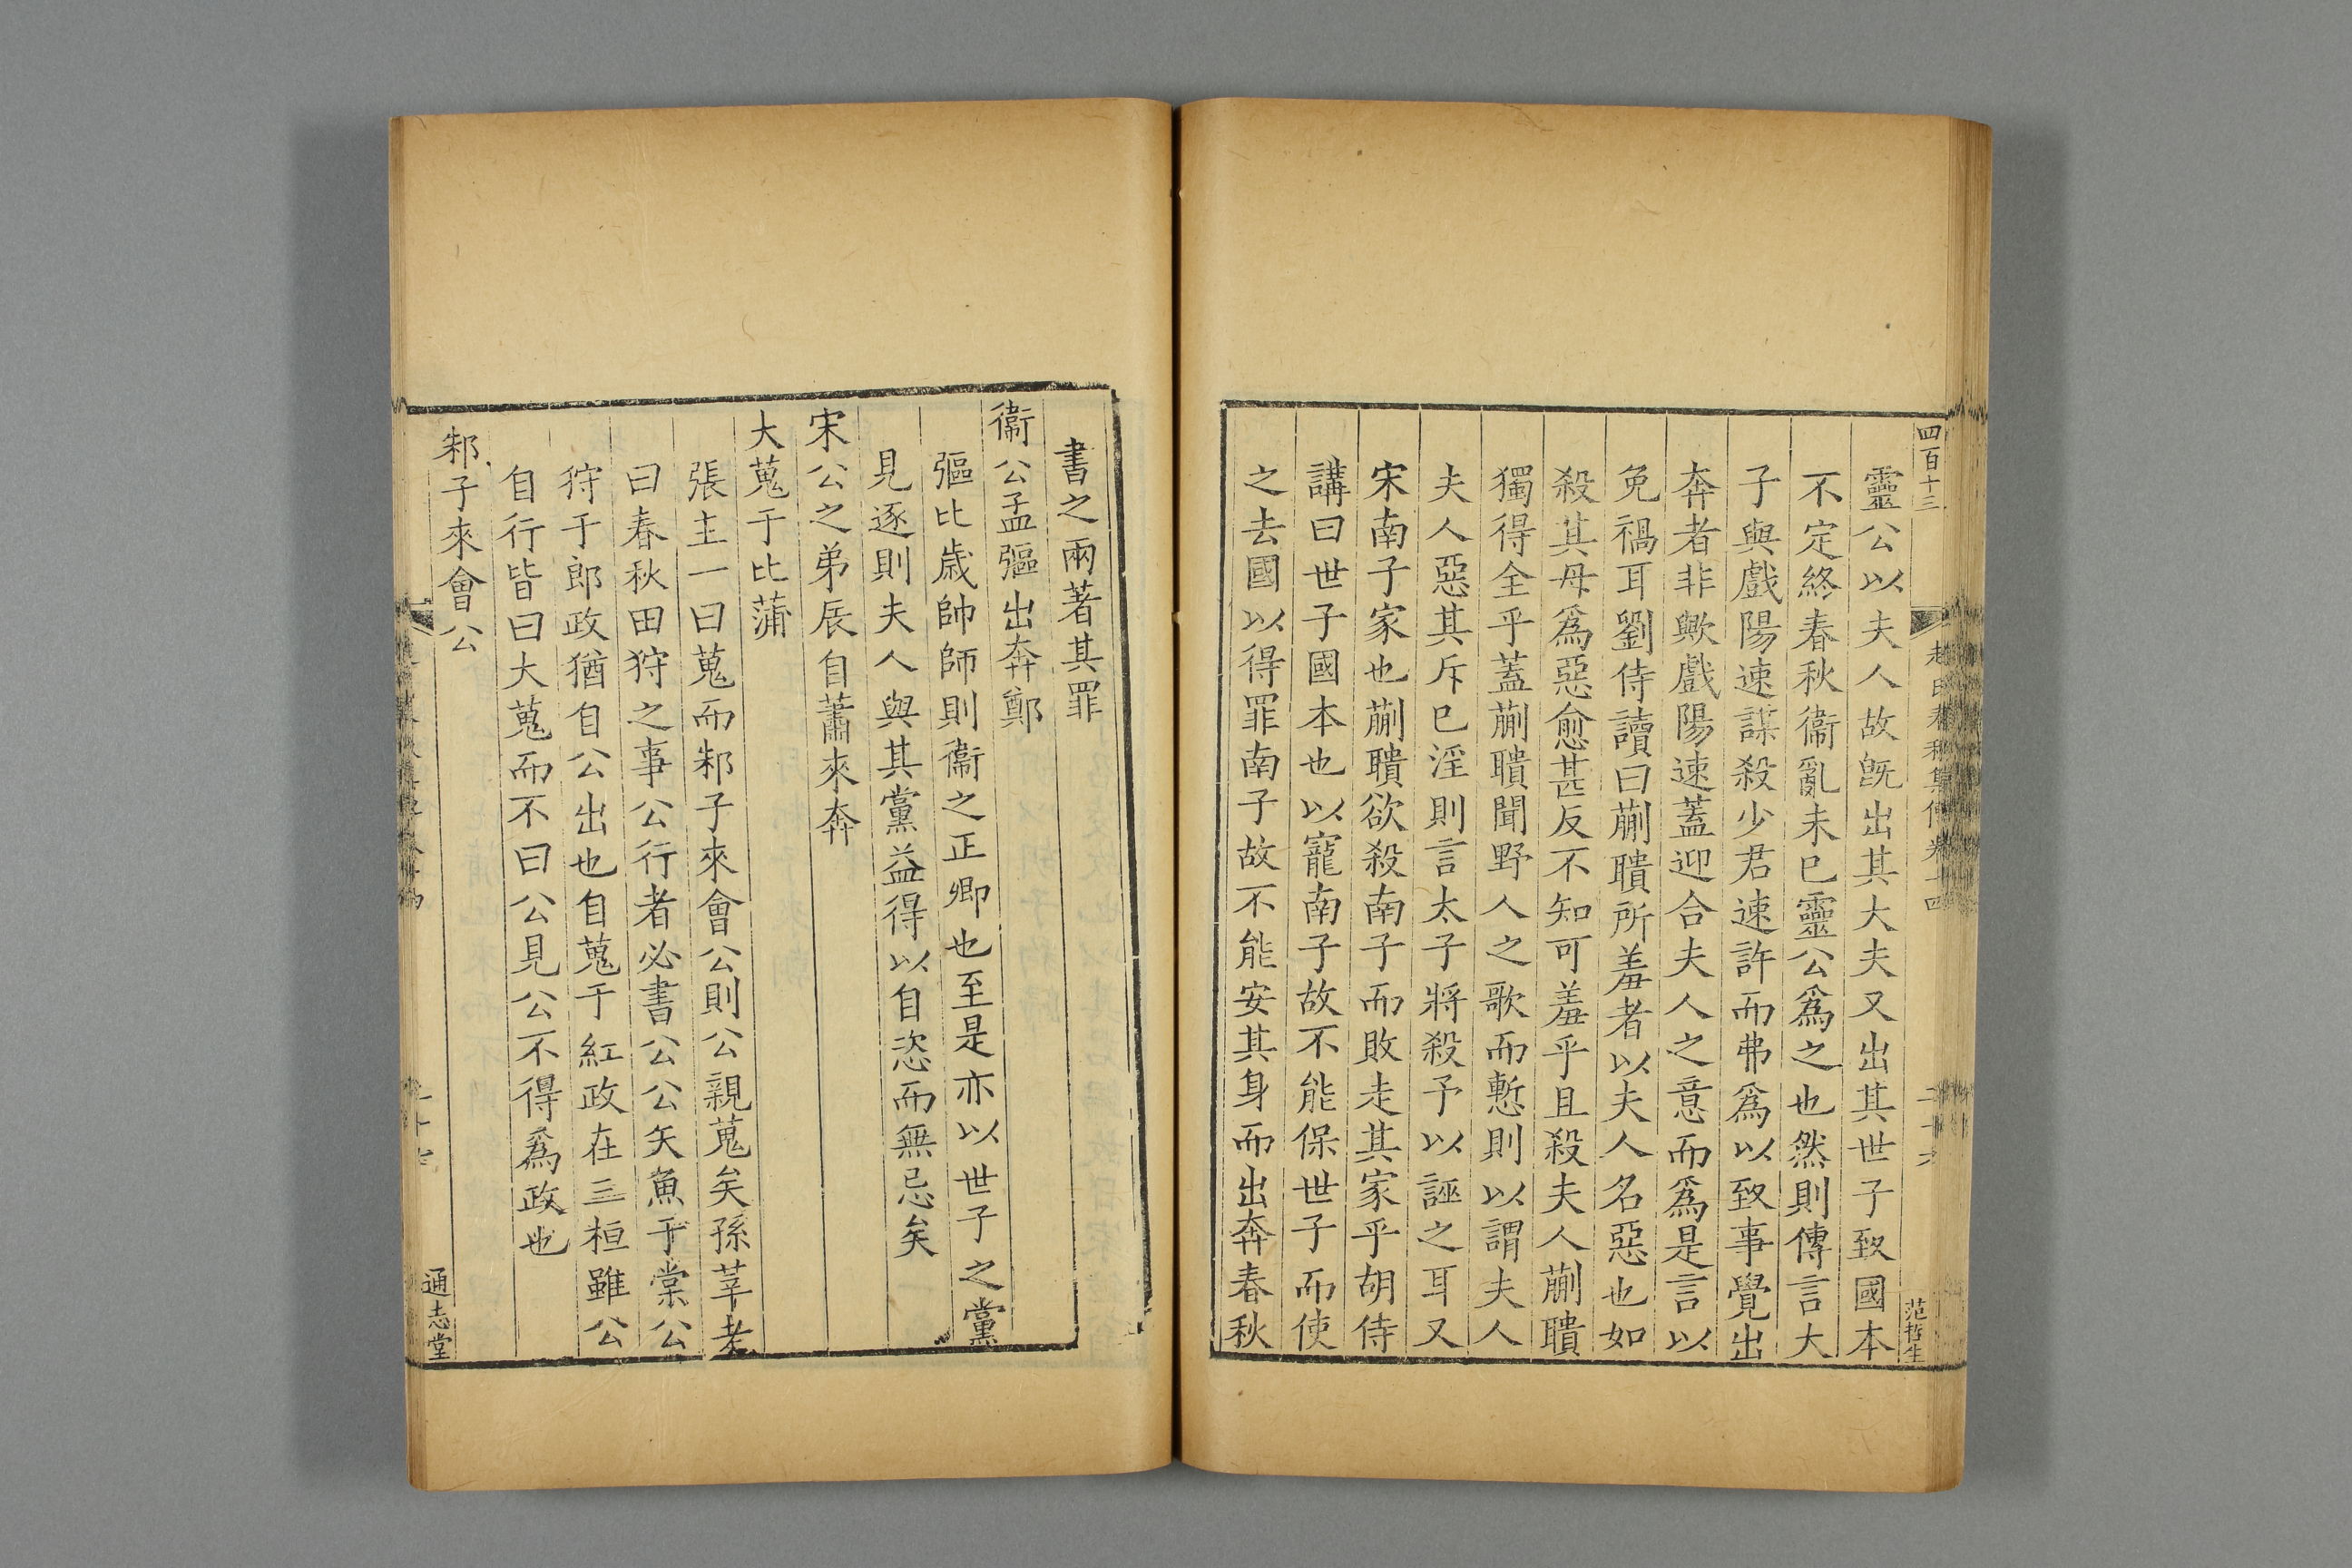 四百十三
范哲生
靈公以夫人故旣出其大夫又出其世子致國本
不定終春秋衞亂未已靈公爲之也然則傳言大
子與戲陽速謀殺少君速許而弗爲以致事覺出
奔者非歟戲陽速蓋迎合夫人之意而爲是言以
免禍耳劉侍讀曰蒯聵所羞者以夫人名惡也如
殺其母爲惡愈甚反不知可羞乎且殺夫人蒯聵
獨得全乎蓋蒯聵聞野人之歌而慙則以謂夫人
夫人惡其斥已淫則言太子將殺予以誣之耳又
宋南子家也蒯聵欲殺南子而敗走其家乎胡侍
講曰世子國本也以寵南子故不能保世子而使
之去國以得罪南子故不能安其身而出奔春秋
書之兩著其罪
衞公孟彄出奔鄭
彄比歲帥師則衞之正卿也至是亦以世子之黨
見逐則夫人與其黨益得以自恣而無忌矣
宋公之弟辰自蕭來奔
大蒐于比蒲
張主一曰蒐而邾子來會公則公親蒐矣孫莘老
曰春秋田狩之事公行者必書公公矢魚于棠公
狩于郎政猶自公出也自蒐于紅政在三桓雖公
自行皆曰大蒐而不曰公見公不得爲政也
邾子來會公
通志堂